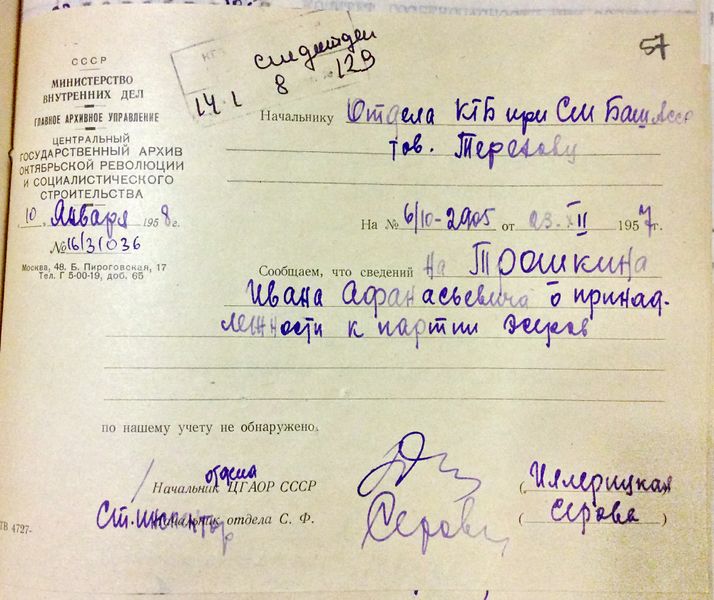 57
следотдел
14.1 8 129
СССР
МИНИСТЕРСТВО
ВНУТРЕННИХ ДЕЛ
ГЛАВНОЕ АРХИВНОЕ УПРАВЛЕНИЕ
ЦЕНТРАЛЬНЫЙ
ГОСУДАРСТВЕННЫЙ АРХИВ
ОКТЯБРЬСКОЙ РЕВОЛЮЦИИ
И СОЦИАЛИСТИЧЕСКОГО
СТРОИТЕЛЬСТВА
10 Января 1958 г.
№ 16/31036
Москва, 48. Б. Пироговская, 17
Тел. Г 5-00-19, доб. 65
Начальнику Отдела КГБ при СМ Баш АССР
тов. Терехову
На № 6/10-2905 от 23.XII 1957 г.
Сообщаем, что сведений на Трошкина
Ивана Афанасьевича о принад-
лежности к партии эсеров
по нашему учету не обнаружено.
/ Начальник отдела ЦГАОР СССР (Иллерицкая
Ст. инспектор Начальник отдела С. Ф. Серова (Серова)
ТВ 4727-